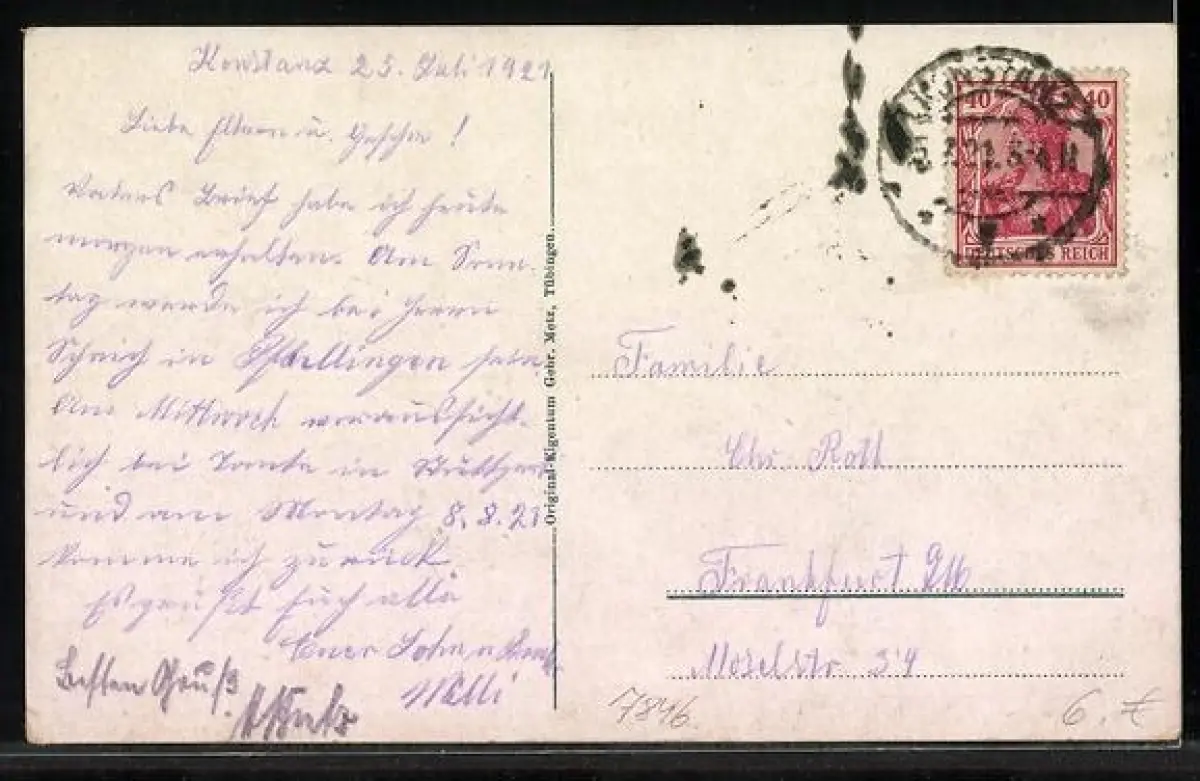 Konstanz 25. Juli 1921
Liebe Eltern u. Geschw. !
Vaters Brief habe ich heute
morgen erhalten. Am Sonn-
tag werde ich bei Herrn
Schaich in sein.
Am Mittwoch voraussicht-
lich bei Tante in Stuttgart
und am Montag 8. 8. 21
komme ich zurück.
Es grüßt Euch alle
Euer Sohn u.
Willi
Besten Gruß
Original-Eigentum Gebr. Metz, Tübingen.
KONSTANZ
40 40
DEUTSCHES REICH
Familie
Chr. Roll
Frankfurt a/M
Moselstr 34
7846.
6.